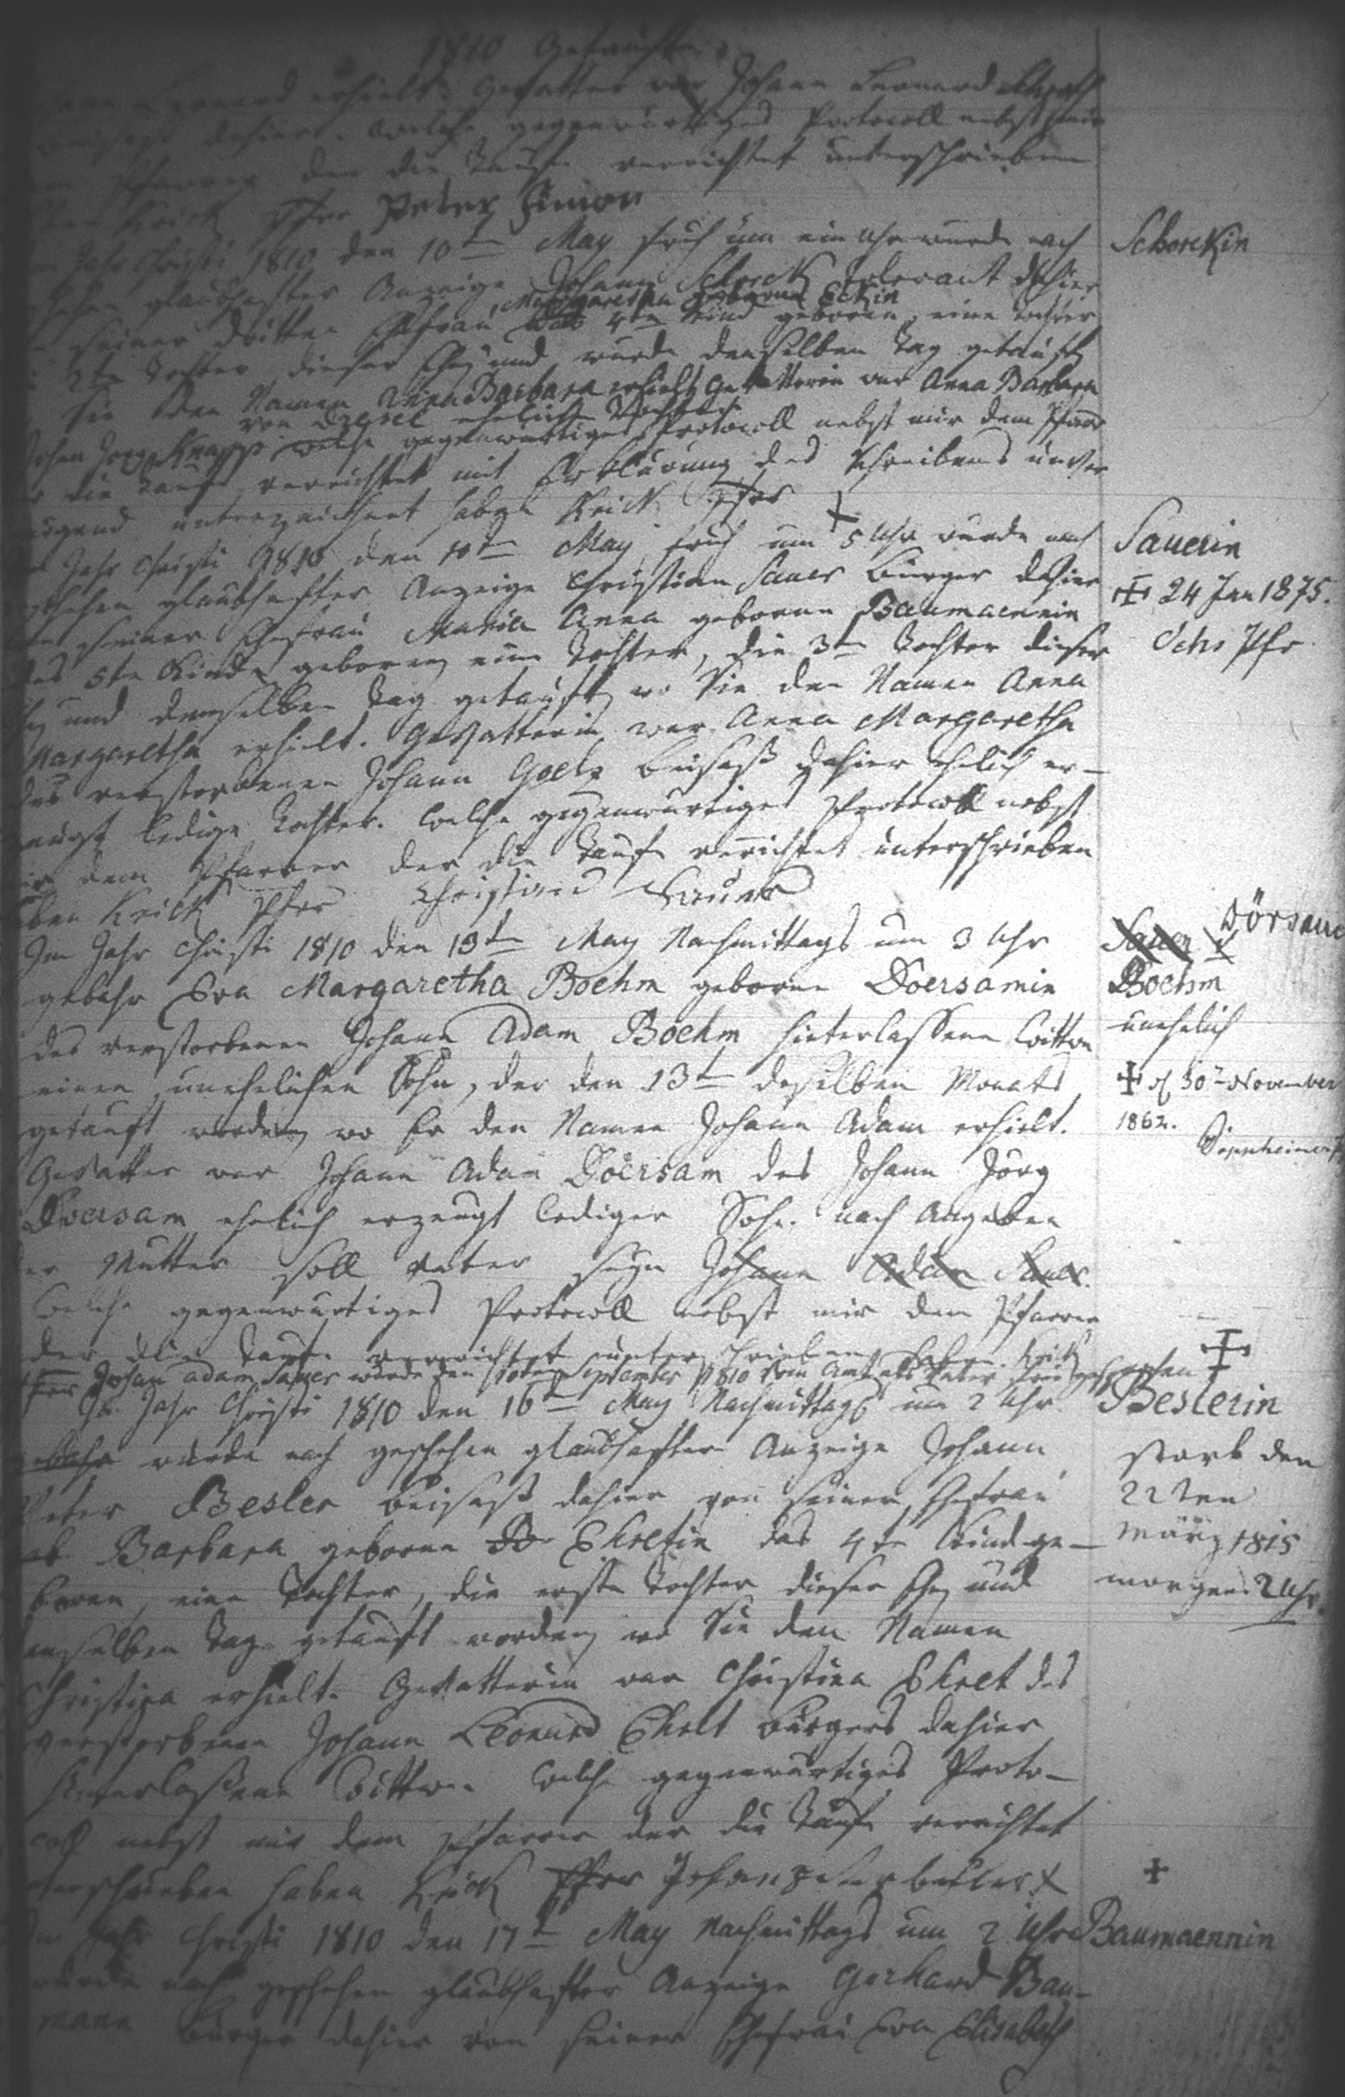 1810 Getaufte
Leonard erhielt. Gevatter war Johann Leonard
dahier. welche gegenwärtiges Protocoll nebst mir
Pfarrer der die Taufe verrichtet unterschrieben
Keick Pfrr Peter Simon
Jahr Christi 1810 den 10t May früh um ein Uhr wurde nach
glaubhafter Anzeige Johann Schorck tolerant dahier
Margaretha geborne Eckin
seiner dritten Ehefrau das 4te Kind geboren, eine Tochter
2te Tochter dieser Ehe und wurde denselben Tag getauft
Sie den Namen Anna Barbara erhielt Gevatterin war Anna Barbara
von ehelich Tochter
Johan Jörg Knapp welche gegenwärtiges Protocoll nebst mir dem Pfarr
die Taufe verrichtet mit Erklärung des Schreibens unver
mögend unterzeichnet haben Keick Pfrr
Jahr Christi 1810 den 10t May früh um 5 Uhr wurde nach
geschehen glaubhafter Anzeige Christian Sauer Bürger dahier
von seiner Ehefrau Maria Anna geborne Baumaennin
das 5te Kind geboren, eine Tochter, die 3te Tochter dieser
Ehe und denselben Tag getauft, wo Sie den Namen Anna
Margaretha erhielt. Gevatterin war Anna Margaretha
des verstorbenen Johann Goetz Beisaß dahier ehelich er-
zeugt ledige Tochter. welche gegenwärtiges Protocoll nebst
mir dem Pfarrer der die Taufe verrichtet unterschrieben
haben Keick Pfrr Christian Sauer
Im Jahr Christi 1810 den 13t May Nachmittags um 3 Uhr
gebahr Eva Margaretha Boehm geborne Doersamin
des verstorbenen Johann Adam Boehm hinterlassene Wittwe
einen unehelichen Sohn, der den 13t deßelben Monats
getauft worden, wo Er den Namen Johann Adam erhielt.
Gevatter war Johann Adam Doersam des Johann Jörg
Doersam ehelich erzeugt lediger Sohn. nach Angeben
der Mutter soll Vater seyn Johann Adam Sauer.
Welche gegenwärtiges Protocoll nebst mir dem Pfarrer
der die Taufe verrichtet unterschrieben haben. Keick
Pfrr Johan Adam Sauer wurde den 10ten September 1810 vom Amt als Vater frei gesprochen
Im Jahr Christi 1810 den 16t May Nachmittags um 2 Uhr
gebahr wurde nach geschehen glaubhafter Anzeige Johann
Peter Besler Beisaß dahier von seiner Ehefrau
Barbara geborne Ehretin das 4te Kind ge-
boren, eine Tochter, die erste Tochter dieser Ehe und
denselben Tag getauft worden, wo Sie den Namen
Christina erhielt. Gevatterin war Christina Ehret des
verstorbenen Johann Leonard Ehret Bürgers dahier
hinterlaßene Wittwe. Welche gegenwärtiges Proto-
coll nebst mir dem Pfarrer der die Taufe verrichtet
unterschrieben haben Keick Pfrr Johan Peter Besler
Jahr Christi 1810 den 17t May Nachmittags um 2 Uhr
wurde nach geschehen glaubhafter Anzeige Gerhard Bau-
mann Bürger dahier von seiner Ehefrau Eva Elisabeth
Schorckin
Sauerin
24 Jan 1875.
Pfr
Sauer
Dörsam
Boehm
unehelich
30t November
1862.
Beslerin
starb den
22ten
März 1815
morgens 2 Uhr.
Baumaennin